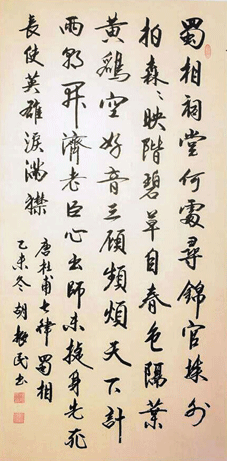 蜀相祠堂何處尋錦官城外
柏森〻映階碧草自春色隔葉
黃鸝空好音三顧頻煩天下計
兩朝開濟老臣心出師未捷身先死
長使英雄淚滿襟
唐杜甫七律蜀相
乙未冬胡民書